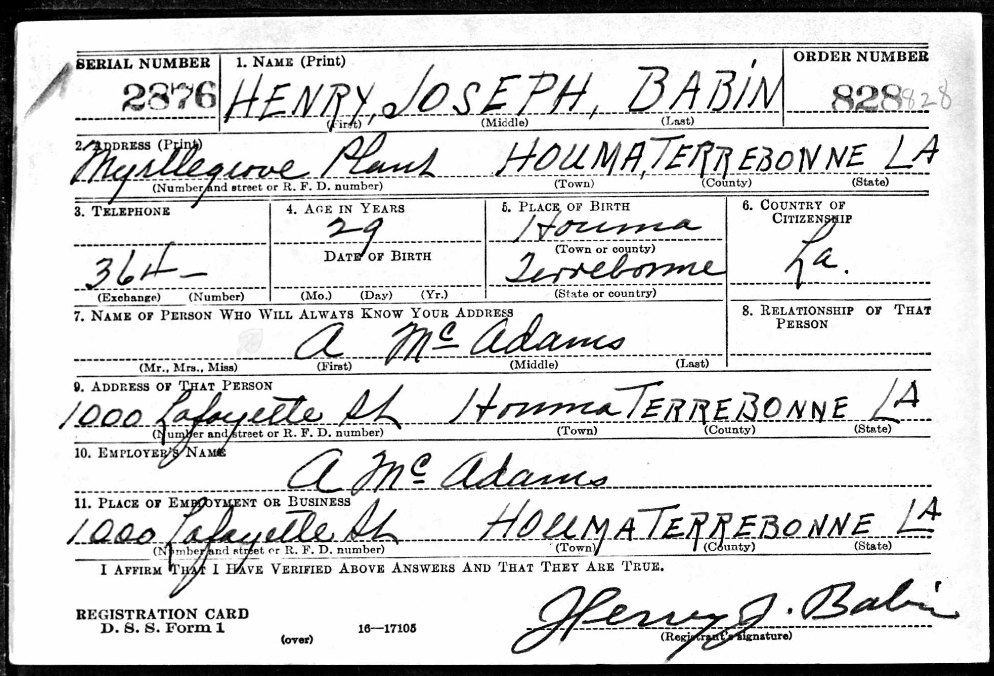 SERIAL NUMBER 1. NAME (Print) ORDER NUMBER
2876 HENRY, JOSEPH, BABIN 828 828
(First) (Middle) (Last)
2. ADDRESS (Print)
Myrtlegrove Plant HOUMA, TERREBONNE LA
(Number and street or R. F. D. number) (Town) (County) (State)
3. TELEPHONE 4. AGE IN YEARS 5. PLACE OF BIRTH 6. COUNTRY OF CITIZENSHIP
29 Houma
(Town or county)
DATE OF BIRTH
364- Terrebonne La.
(Exchange) (Number) (Mo.) (Day) (Yr.) (State or country)
7. NAME OF PERSON WHO WILL ALWAYS KNOW YOUR ADDRESS 8. RELATIONSHIP OF THAT PERSON
A Mc Adams
(Mr., Mrs., Miss) (First) (Middle) (Last)
9. ADDRESS OF THAT PERSON
1000 Lafayette St Houma TERREBONNE LA
(Number and street or R. F. D. number) (Town) (County) (State)
10. EMPLOYER'S NAME
A Mc Adams
11. PLACE OF EMPLOYMENT OR BUSINESS
1000 Lafayette St HOUMA TERREBONNE LA
(Number and street or R. F. D. number) (Town) (County) (State)
I AFFIRM THAT I HAVE VERIFIED ABOVE ANSWERS AND THAT THEY ARE TRUE.
REGISTRATION CARD
D. S. S. Form 1 (over) 16—17105
Henry J. Babin
(Registrant's signature)